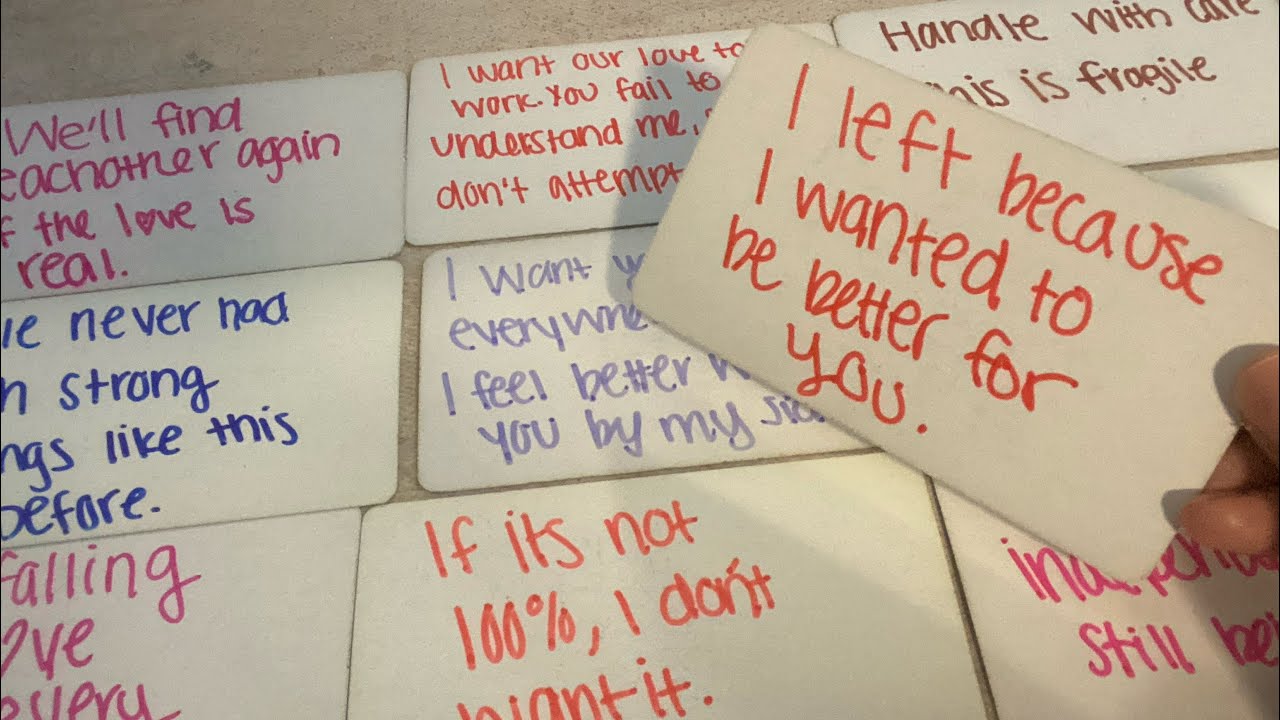 We'll find
eachother again
the love is
real.
I want our love to
work. You fail to
understand me,
don't attempt
Handle with care
this is fragile
I left because
I wanted to
be better for
you.
never had
strong
like this
before.
I want
I feel better
you by my
falling
If its not
100%, I don't
want it.
still